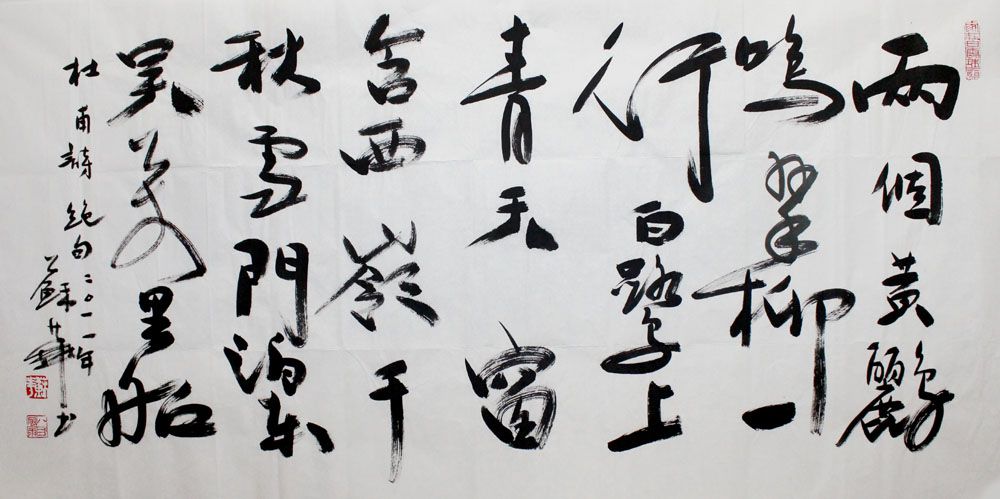 兩個黃鸝
鳴翠柳一
行白鷺上
青天窗
含西嶺千
秋雪門泊東
吳萬里船
杜甫詩絕句二〇一一年
蘇華书